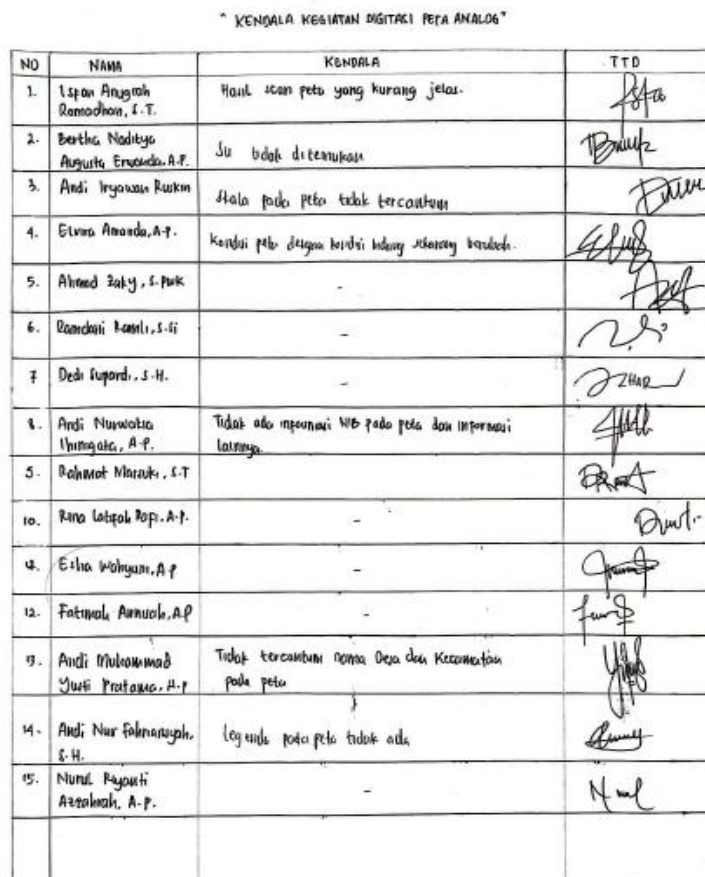 " KENDALA KEGIATAN DIGITASI PETA ANALOG"
NO NAMA KENDALA TTD
1. Ispan Anugrah Hasil scan peta yang kurang jelas.
Ramadhan, S.T.
2. Bertha Naditya Su tidak ditemukan
Augusta A.P.
3. Andi Iryawan Ruskin Skala pada peta tidak tercantum
4. Elvira Amanda, A.P. Kondisi peta dengan kondisi bidang sekarang berubah.
5. Ahmad Zaky, S.PWK -
6. Ramdani Ramli, S.Si -
7 Dedi Supardi, S.H. -
8. Andi Nurwatia Tidak ada informasi NIB pada peta dan informasi
A.P. lainnya.
5. Rahmat Marzuki, S.T
10. Rina Latifah A.P. -
Esha Wahyuni, A.P -
12. Fatimah A.P -
13. Andi Muhammad Tidak tercantum nama Desa dan Kecamatan
Yusti Pratama, A.P pada peta
14. Andi Nur Fahriansyah, Legenda pada peta tidak ada
S.H.
15. Nurul Riyanti -
Azzahrah, A.P.